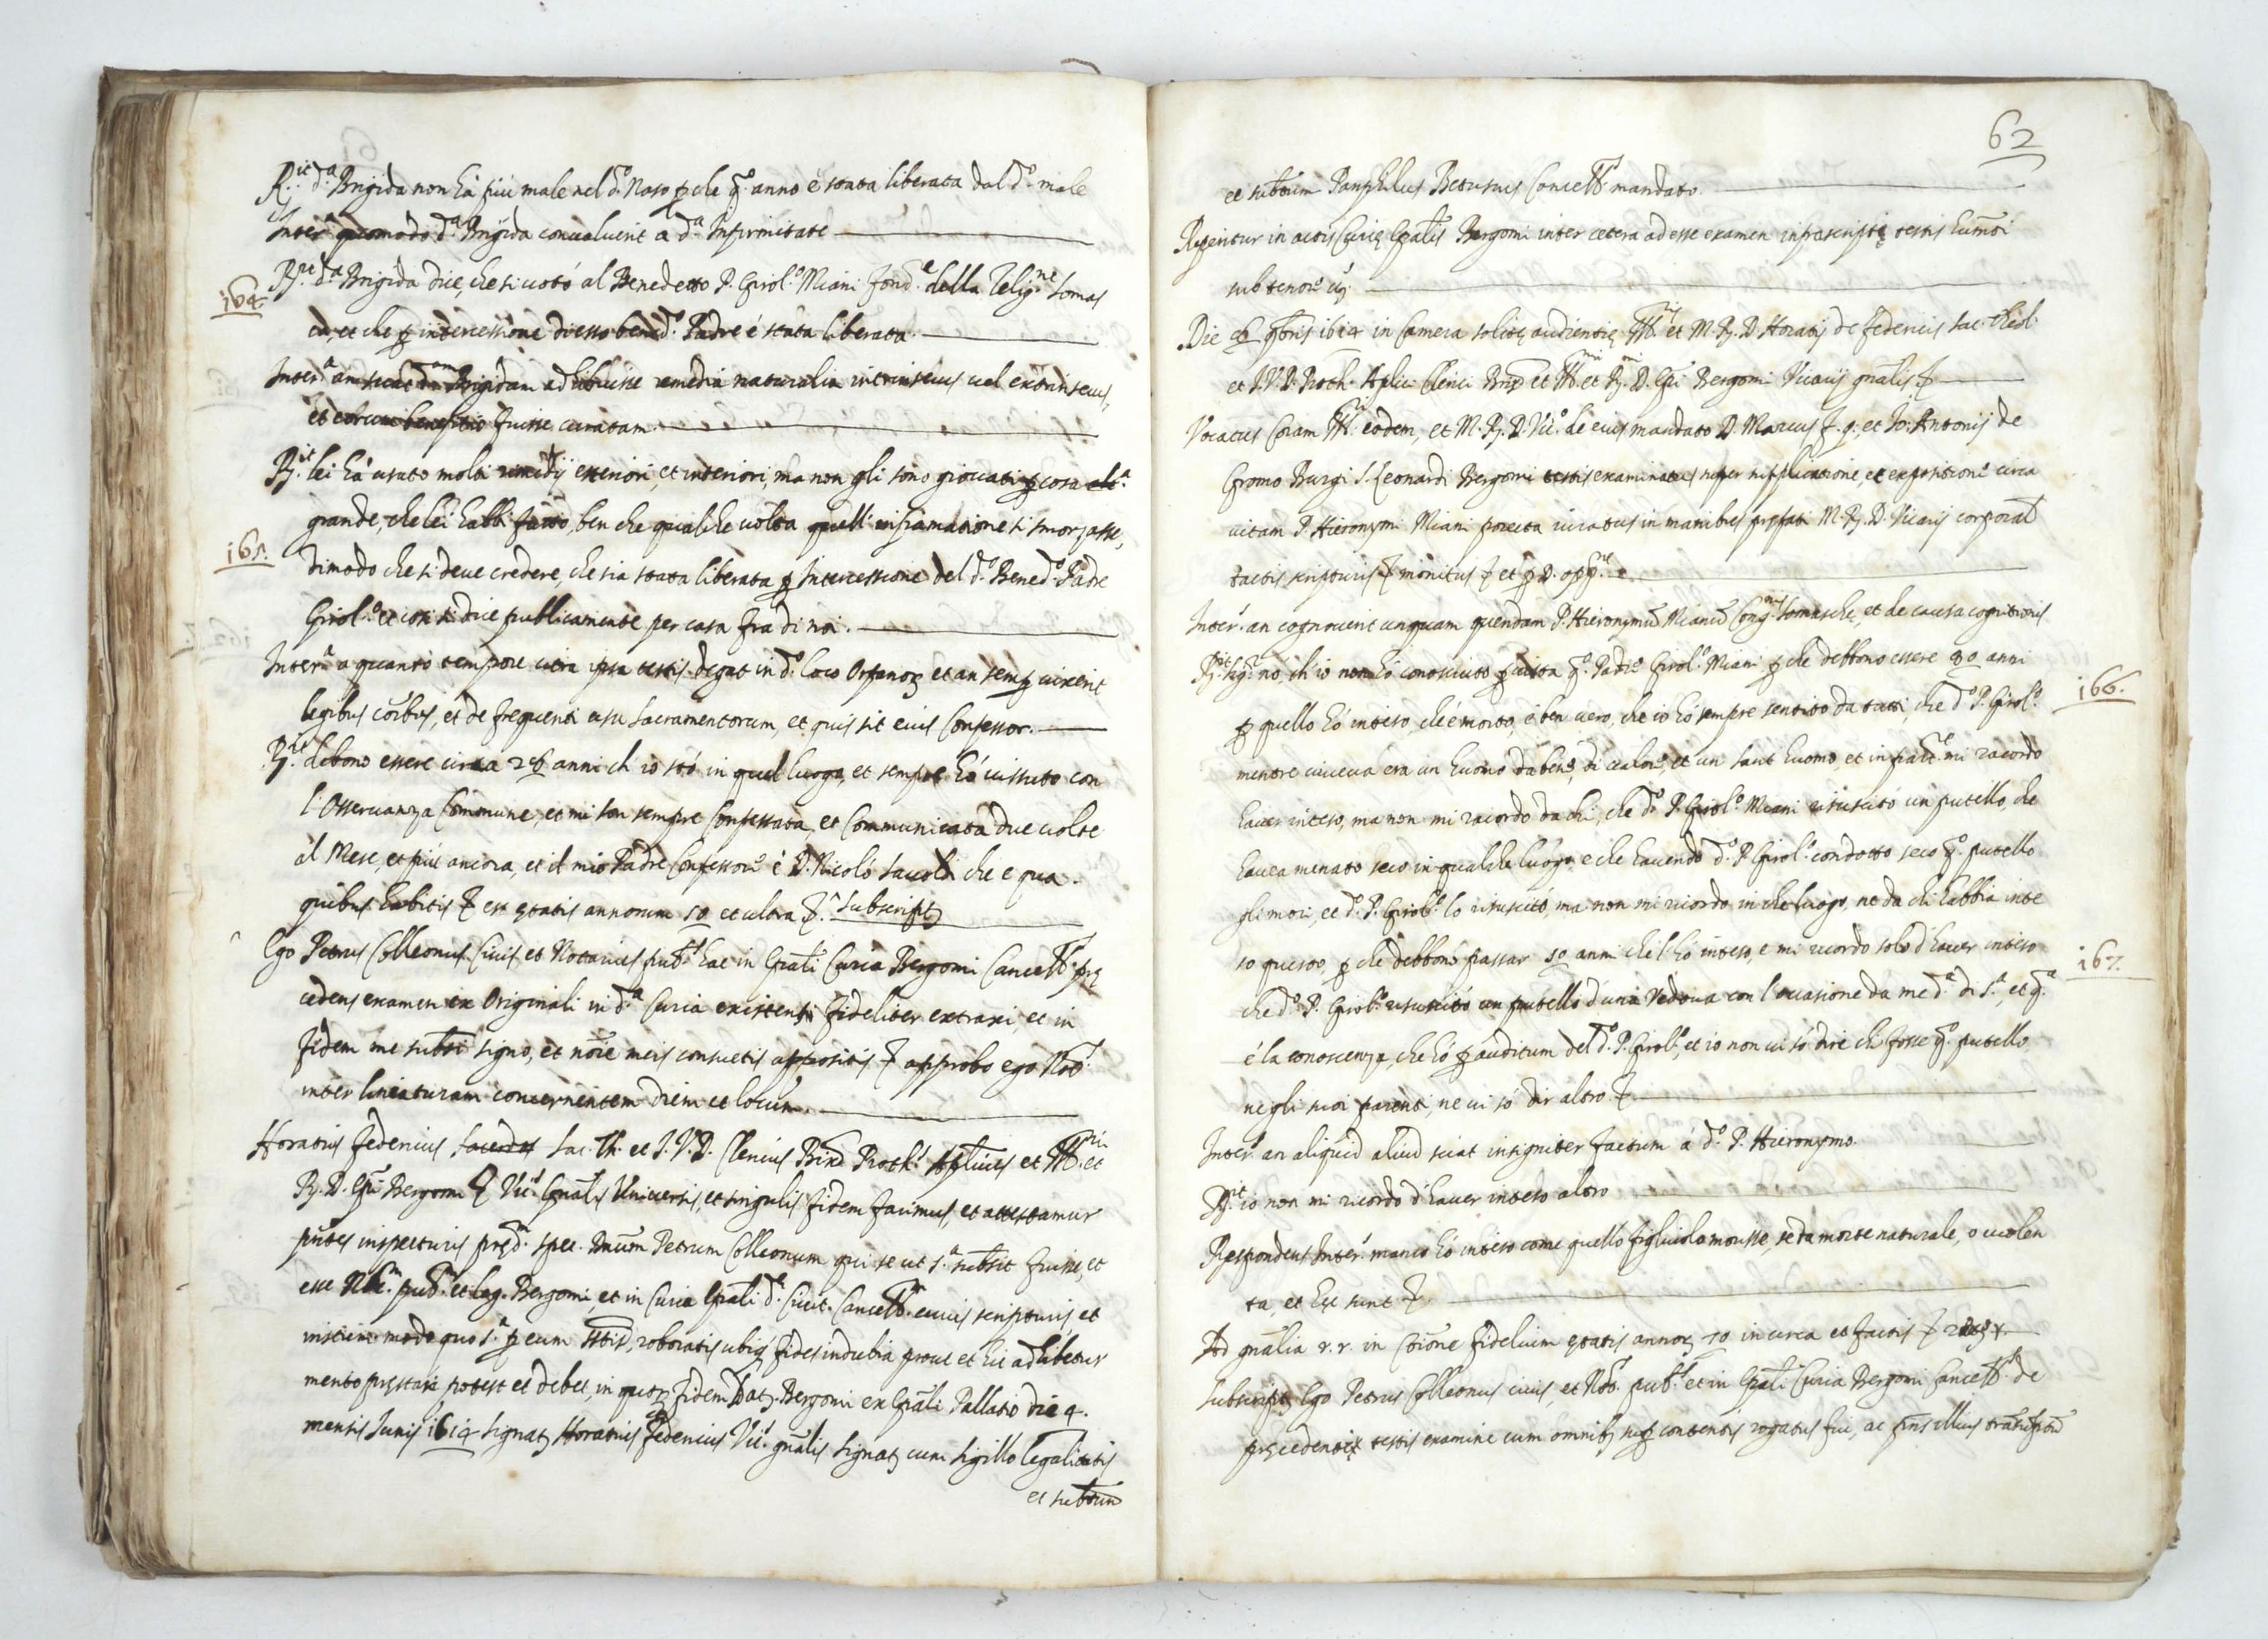 R.it d.a Brigida non hà più male nel d.o naso p che q.o anno è stata liberata dal d.o male
Inter.a quomodo d.a Brigida convaluerit a d.a Infirmitate
164.
R.it d.a Brigida dice, che si votò al Benedetto P. Girol.o Miani fond.e della Relig.ne Somas
ca, et che p intercessione di esso bened.o Padre è stata liberata.
Inter.a an sciat d.am Brigidam adhibuisse remedia naturalia intrinsecus vel extrinsecus,
et eorum beneficio fuisse curatam
R.it lei hà usato molti remedij esteriori, et interiori, ma non gli sono giovati p cosa
grande, che lei habbi fatto, ben che qualche volta quell'infiamatione si smorzasse,
165.
dimodo che si deve credere, che sia stata liberata p Intercessione del d.o Bened.o Padre
Girol.o et così si dice publicamente per casa fra di noi.
Inter.a a quanto tempore citra ipsa testis degat in d.o loco Orfanor et an semp vixerit
legibus cōibus, et de frequenti usu Sacramentorum, et quis sit eius Confessor.
R.it debono essere circa 28 anni ch'io stò in quel luogo, et sempre hò vissuto con
l'Osservanza Commune, et mi son sempre Confessata, et Communicata due volte
il Mese, et più ancora, et il mio Padre Confessore è D. Nicolò che e qua.
quibus habitis et ętatis annorum 50 et ultra Subscript
Ego Petrus Colleonus Civis et Notarius pub.s hac in Epāli Curia Bergomi Cancell. prę
cedens examen ex Originali in d.a Curia existenti fideliter extraxi, et in
fidem me subsi signo, et nōie meis consuetis appositis approbo ego Not.
inter lineaturam concernentem diem et locum.
Horatius Federicus Sac. Th. et I.V.D. Clericus Proth. Aplicus et Ill.mi et
R. D. Epī Bergomi Vic.s Gnālis Universis, et singulis fidem facimus, et attestamur
pntes inspecturis pręd. spec. Dnūm Petrum Colleonum qui se ut s.a subsit fuisse, et
esse Not.m pub.m et leg. Bergomi, et in Curia Epāli d.e Civit. Cancell. cuius scripturis et
modo quo s.a p eum roboratis ubiq fides indubia prout et hic adhibetur
merito pręstari potest et debet, in quor fidem Dat. Bergomi ex Epāli Pallatio die 4.
mensis Junij 1614 signat Horatius Federicus Vic.s gnālis signat cum sigillo legalitatis
et subtum
62
et subtum Panphilus Cancell. mandato.
Reperitur in actis Curię Epālis Bergomi inter cetera adesse examen infrascriptę testis
sub tenore
Die 1614 in Camera solitę audientię Ill. et M. R. D. Horatij de Federicis Sac. Theol.
et I.V.D. Proth. Aplici Clerici et Ill.mi et R.mi D. Epī Bergomi Vicarij gnālis
Vocatus coram Ill. eodem, et M. R. D. Vic.o de eius mandato D. Marcus f. q. et Jo: Antonij de
Gromo Burgi S. Leonardi Bergomi testis examinatus super supplicatione, et expositione circa
vitam P. Hieronymi Miani porecta iuratus in manibus pręfati M. R. D. Vicarij corporal
tactis scripturis monitus et p D. opp.ne
Inter. an cognoverit unquam quendam P. Hieronymū Mianū Cong.nis Somaschę, et de causa cognitionis
166.
R.it sig.r no, ch'io non hò conosciuto p vista q.o Padre Girol.o Miani p che debbono essere 80 anni
p quello hò inteso, che è morto, è ben vero, che io hò sempre sentito da tutti, che d.o P. Girol.o
mentre viveva era un huomo da bene, di valore, et un sant'huomo, et in partic.re mi racordo
haver inteso, ma non mi racordo da chi, che d.o P. Girol.o Miani risuscitò un putello, che
havea menato seco in qualche luogo e che havendo d.o P. Girol.o condotto seco q.o putello
gli morì, et d.o P. Girol.o lo risuscitò, ma non mi ricordo in che luogo, ne da chi habbia inte
167.
so questo, p che debbono passar 50 anni che l'hò inteso, e mi ricordo solo d'haver inteso
che d.o P. Girol.o risuscitò un putello d'una Vedova con l'occasione da me d.a di s.a et q.a
è la conoscenza, che hò p auditum del d.o P. Girol.o, et io non vi sò dire chi fosse q.o putello
ne gli suoi parenti, ne vi sò dir altro
Inter. an aliquid aliud sciat insigniter factum à d.o P. Hieronymo.
R.it io non mi ricordo d'haver inteso altro
Respondens Inter. manco hò inteso come quello figliuolo morisse, se da morte naturale, o violen
ta, et hęc sunt
Ad gnālia r. r. in cōione fidelium ętatis annor 70 in circa et factis
Subscript Ego Petrus Colleonus civis, et Not. pub.s et in Epāli Curia Bergomi Cancell. de
pręcedentis testis examine cum omnib sup contentis rogatus fui, ac pns illius